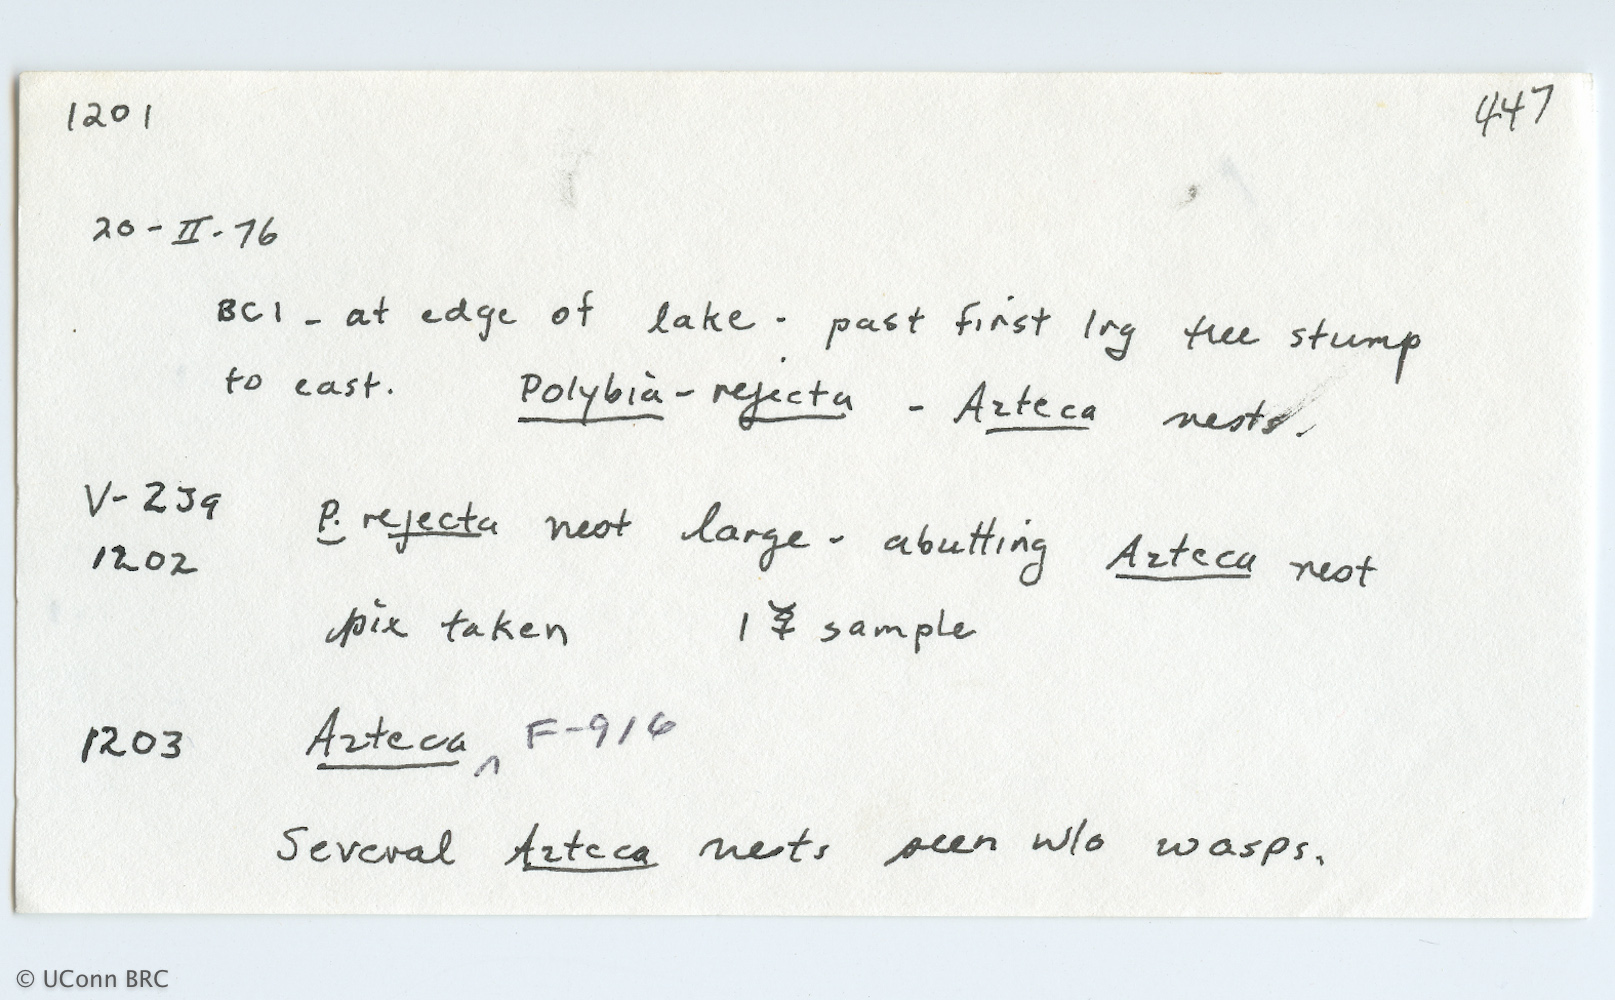 1201 447
20-II-76
BCI - at edge of lake - past first lrg tree stump
to east. Polybia-rejecta - Azteca nests.
V-239 P. rejecta nest large - abutting Azteca nest
1202
pix taken 1 ☿ sample
1203 Azteca ^ F-916
Several Azteca nests seen w/o wasps.
© UConn BRC